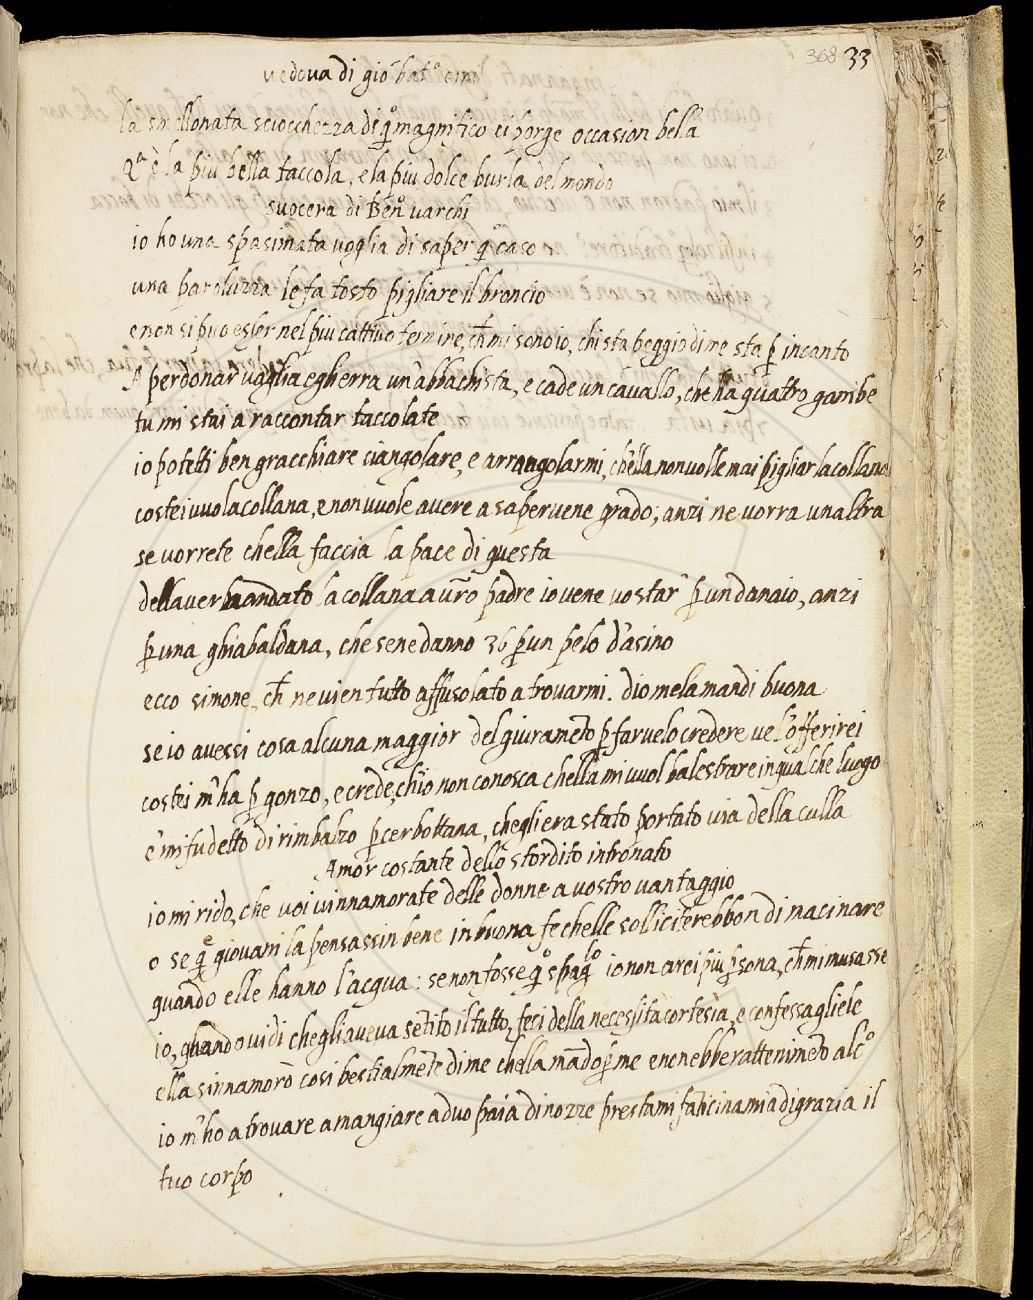 368 33
vedova di gio: bat.° cini
la smellonata sciocchezza di q.° magnifico ci porge occasion bella
Q.a è la piu bella taccola, e la piu dolce burla del mondo
suocera di Ben.° varchi
io ho una spasimata voglia di saper q. caso
una paroluzza le fa tosto pigliare il broncio
e non si puo esser nel piu cattivo termine, ch̃ mi sono io, chi sta peggio di me sta p̱ incanto
A perdonar vaglia egli erra un'abbachista, e cade un cavallo, che ha quattro gambe
tu mi stai a raccontar taccolate
io potetti ben gracchiare ciangolare, e arrangolarmi, ch'ella non volle mai pigliar la collana
costei vuol a collana, e non vuole avere a sapervene grado; anzi ne vorra un altra
se vorrete ch'ella faccia la pace di questa
dell aver mandato la collana a vr̃o padre io ve ne vo star p̱ un danaio, anzi
p̱ una ghiabaldana, che se ne danno 36 p̱ un pelo d'asino
ecco simone, ch̃ ne vien tutto affusolato a trovarmi. dio me la mandi buona
se io avessi cosa alcuna maggior del giuram̃eto p̱ farvelo credere ve l'offerirei
costei m'ha p̱ gonzo, e crede, ch'io non conosca ch'ella mi vuol balestrare in qualche luogo
e' mi fu detto di rimbalzo p̱ cerbottana, ch'egli era stato portato via della culla
Amor costante dello stordito intronato
io mi rido, che voi vinnamorate delle donne a vostro vantaggio
o se q.e giovani la pensassin bene in buona fe ch'elle solliciterebbon di macinare
quando elle hanno l'acqua: se non fosse q.° spag.lo io non arei piu p̱sona, ch̃ mi musasse
io, quando vidi che gli aveva sẽtito il tutto, feci della necessità cortesia, e confessagliele
ella s'innamorò cosi bestialmẽte di me ch'ella mãdò p̱ me e ne n'ebbe rattenimẽto alc.°
io m'ho a trovare a mangiare a duo paia di nozze prestami faticinamia di grazia il
tuo corpo